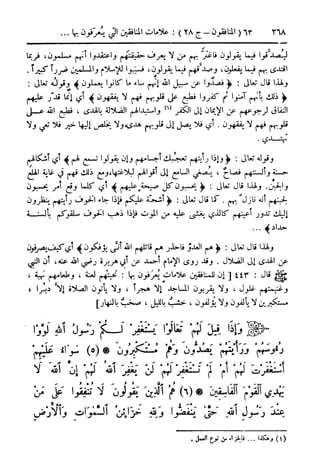 ٣٦٨ ٦٣ (المنافقون - ج ٢٨) : علامات المنافقين التي يُعرفون بها ...
ليُصدّقوا فيما يقولون فاغترّ بهم من لا يعرف حقيقتهم واعتقدوا أنهم مسلمون، فربما
اقتدى بهم فيما يفعلون، وصدّقهم فيما يقولون، فسببوا للإسلام والمسلمين ضرراً كبيراً.
ولهذا قال تعالى : ﴿ فصدّوا عن سبيل الله إنّهم ساء ما كانوا يعملون ﴾ وقوله تعالى :
﴿ ذلك بأنهم آمنوا ثم كفروا فطبع على قلوبهم فهم لا يفقهون ﴾ أي إنّما قدّر عليهم
النفاق لرجوعهم عن الإيمان إلى الكفر (١) واستبدالهم الضلالة بالهدى ، فطبع الله على
قلوبهم فهم لا يفقهون . أي فلا يصل إلى قلوبهم هدى ولا يخلص إليها خير فلا تعي ولا
تهتدي .
وقوله تعالى : ﴿ وإذا رأيتهم تعجبك أجسامهم وإن يقولوا تسمع لهم ﴾ أي أشكالهم
حسنة وألسنتهم فصاح ، يُصغي السامع إلى أقوالهم لبلاغتها، ومع ذلك فهم في غاية الهلع
والجبن . ولهذا قال تعالى : ﴿ يحسبون كل صيحة عليهم ﴾ أي كلما وقع أمر يحسبون
لجبنهم أنه نازل بهم . كما قال تعالى : ﴿ أشحّة عليكم فإذا جاء الخوف رأيتهم ينظرون
إليك تدور أعينهم كالذي يغشى عليه من الموت فإذا ذهب الخوف سلقوكم بألسنة
حداد ﴾ ...
ولهذا قال تعالى : ﴿ هم العدو فاحذرهم قاتلهم الله أنّى يؤفكون ﴾ أي كيف يصرفون
عن الهدى إلى الضلال . وقد روى الإمام أحمد عن أبي هريرة رضي الله عنه، أن النبي
قال : ٤٤٣ [ إن للمنافقين علامات يُعرفون بها : تحيتهم لعنة ، وطعامهم نهبة ،
وغنيمتهم غلول ، ولا يقربون المساجد إلا هجراً ، ولا يأتون الصلاة إلا دبرا ،
مستكبرين لا يألفون ولا يؤلفون ، خشب بالليل ، صخب بالنهار]
وَإِذَا قِيلَ لَهُمْ تَعَالَوْا يَسْتَغْفِرْ لَكُمْ رَسُولُ اللَّهِ لَوَّوْا
رُءُوسَهُمْ وَرَأَيْتَهُمْ يَصُدُّونَ وَهُمْ مُسْتَكْبِرُونَ * (٥) سَوَاءٌ عَلَيْهِمْ
أَسْتَغْفَرْتَ لَهُمْ أَمْ لَمْ تَسْتَغْفِرْ لَهُمْ لَنْ يَغْفِرَ اللَّهُ لَهُمْ إِنَّ اللَّهَ لَا
يَهْدِي الْقَوْمَ الْفَاسِقِينَ * (٦) هُمُ الَّذِينَ يَقُولُونَ لَا تُنْفِقُوا عَلَى مَنْ
عِنْدَ رَسُولِ اللَّهِ حَتَّى يَنْفَضُّوا وَلِلَّهِ خَزَائِنُ السَّمَوَاتِ وَالْأَرْضِ
(١) وهكذا ... فالجزاء من نوع العمل .